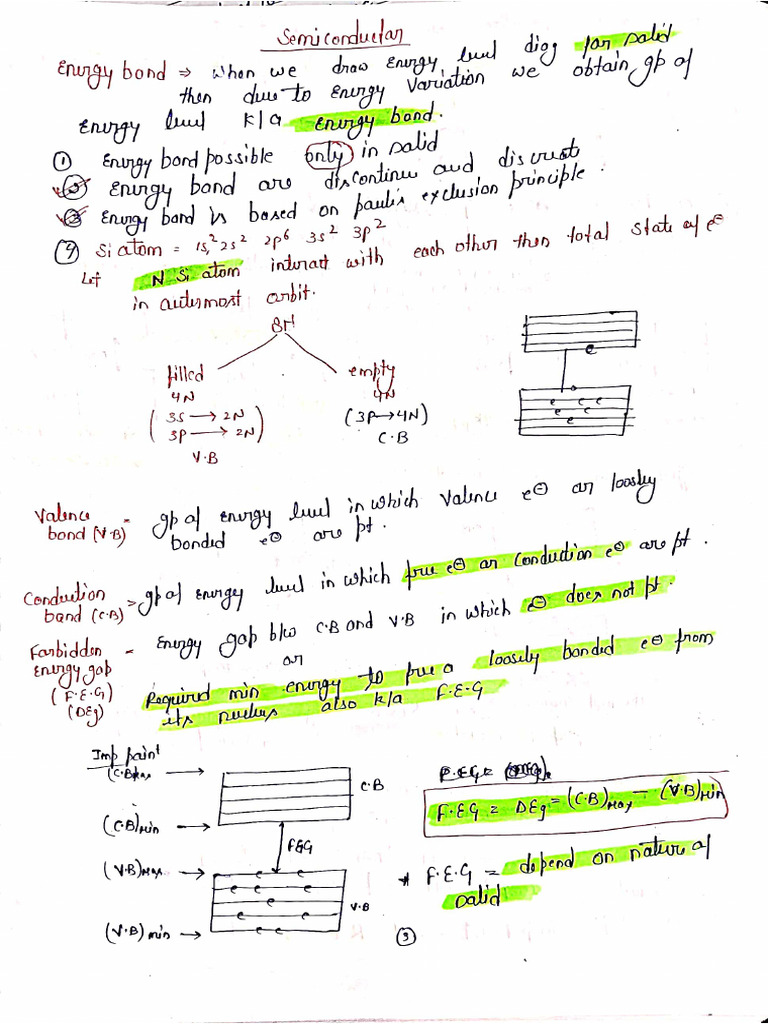 Semiconductor
Energy bond ⇒ When we draw energy level diag for solid
then due to energy variation we obtain gp of
energy level k/a energy bond.
① Energy bond possible only in solid
② Energy bond are discontinue and discrete
③ Energy bond is based on paulis exclusion principle.
④ Si atom = 1s,² 2s² 2p⁶ 3s² 3p²
Let N Si atom interact with each other then total state of e⊖
in outermost orbit.
8N
filled empty
4N 4N
(3s → 2N (3P → 4N)
3P → 2N) C.B
V.B
e
e e e
e e
e
Valence bond (V.B) = gp of energy level in which valence e⊖ or loosely
bonded e⊖ are pt.
Conduction band (C.B) = gp of energy level in which free e⊖ or conduction e⊖ are pt.
Farbidden energy gap (F.E.G) (DEg) - Energy gap b/w C.B and V.B in which ⊖ does not pt.
or
Required min energy to free a loosely bonded e⊖ from
its nucleus also k/a F.E.G
Imp point
(C.B)Max →
C.B
(C.B)Min →
FEG
(V.B)Max →
e e
e e e
e e
e e
V.B
(V.B)min →
e e
F.E.G =
F.E.G = DEg = (C.B)Max - (V.B)Min
* F.E.G = depend on nature of
solid
③